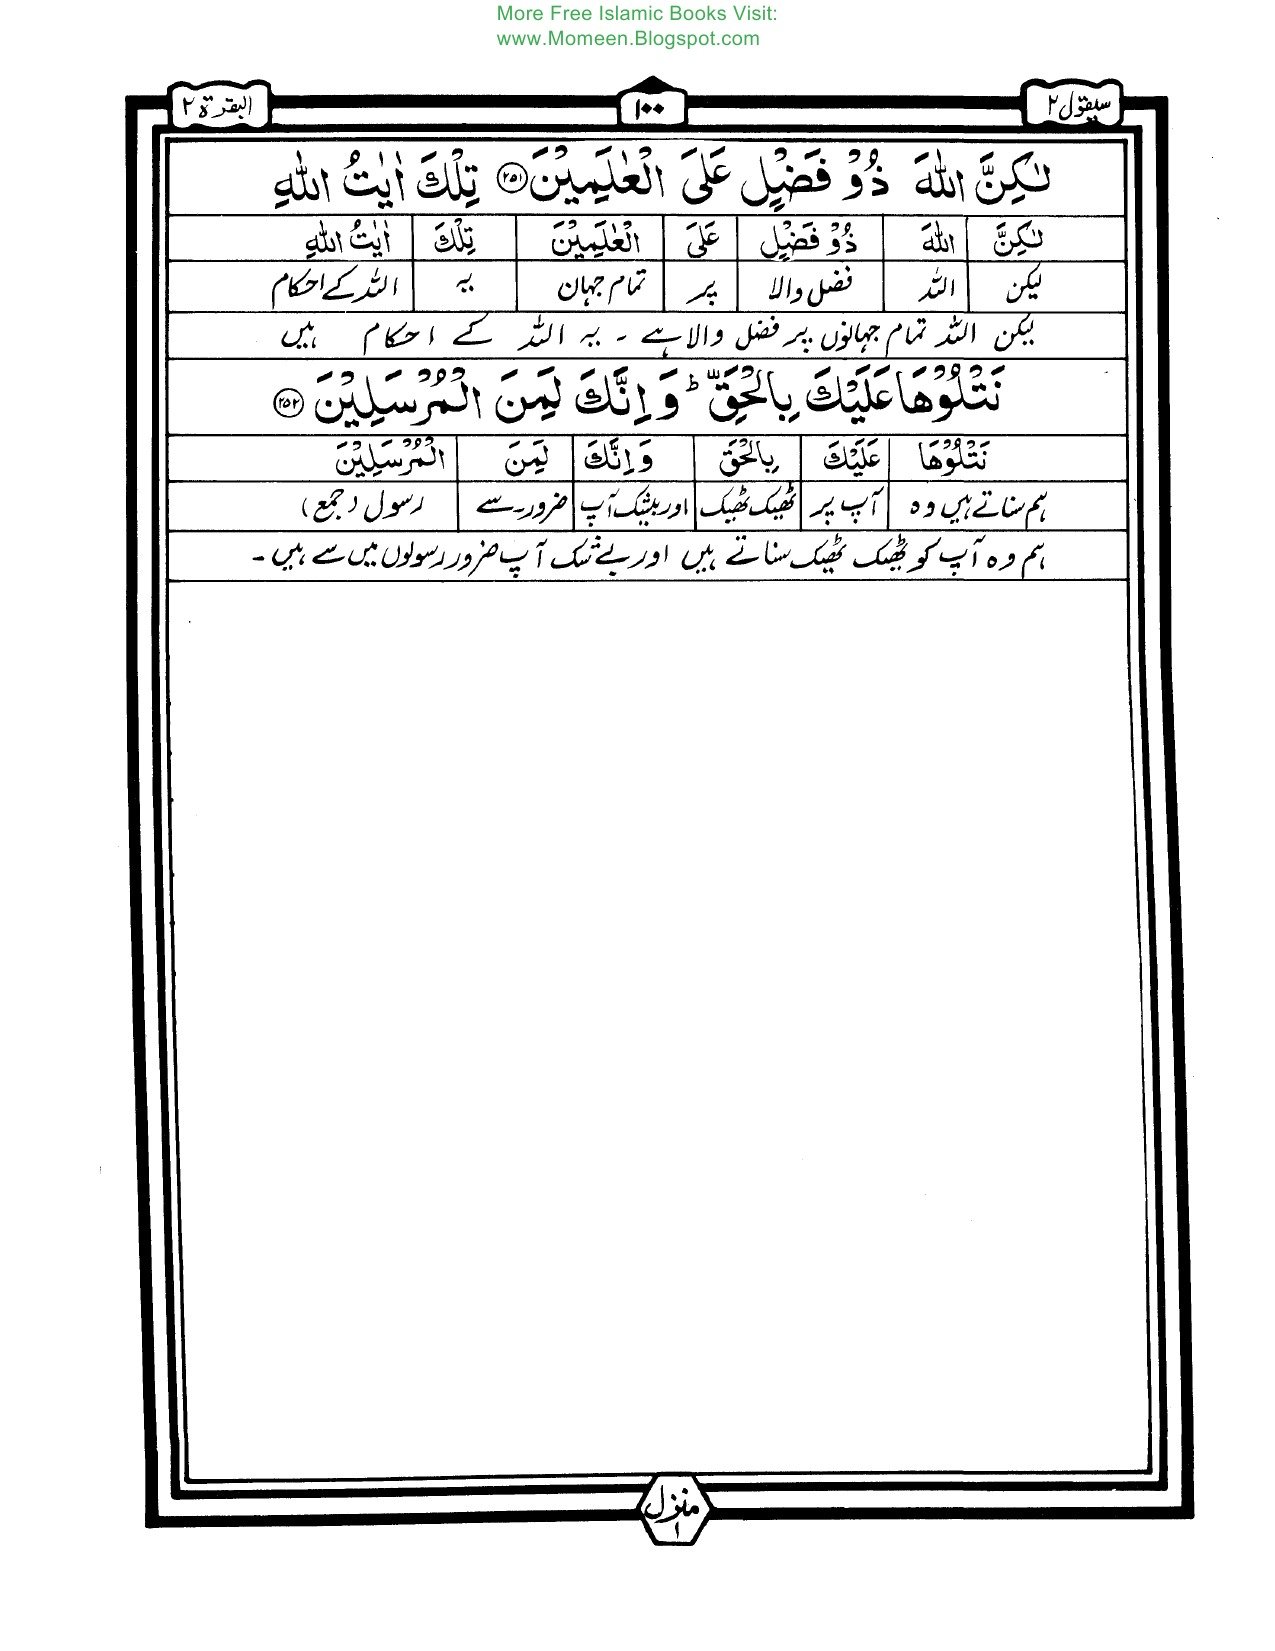 More Free Islamic Books Visit:
www.Momeen.Blogspot.com
سیقول ۲ ۱۰۰ البقرة ۲
لٰكِنَّ اللّٰهَ ذُوْ فَضْلٍ عَلَى الْعٰلَمِيْنَ ۲۵۱ تِلْكَ اٰيٰتُ اللّٰهِ
لٰكِنَّ اللّٰهَ ذُوْ فَضْلٍ عَلَى الْعٰلَمِيْنَ تِلْكَ اٰيٰتُ اللّٰهِ
لیکن اللہ فضل والا پر تمام جہان یہ اللہ کے احکام
لیکن اللہ تمام جہانوں پر فضل والا ہے ۔ یہ اللہ کے احکام ہیں
نَتْلُوْهَا عَلَيْكَ بِالْحَقِّ ؕ وَ اِنَّكَ لَمِنَ الْمُرْسَلِيْنَ ۲۵۲
نَتْلُوْهَا عَلَيْكَ بِالْحَقِّ وَ اِنَّكَ لَمِنَ الْمُرْسَلِيْنَ
ہم سناتے ہیں وہ آپ پر ٹھیک ٹھیک اور بیشک آپ ضرور۔سے رسول (جمع)
ہم وہ آپ کو ٹھیک ٹھیک سناتے ہیں اور بے شک آپ ضرور رسولوں میں سے ہیں ۔
منزل ۱